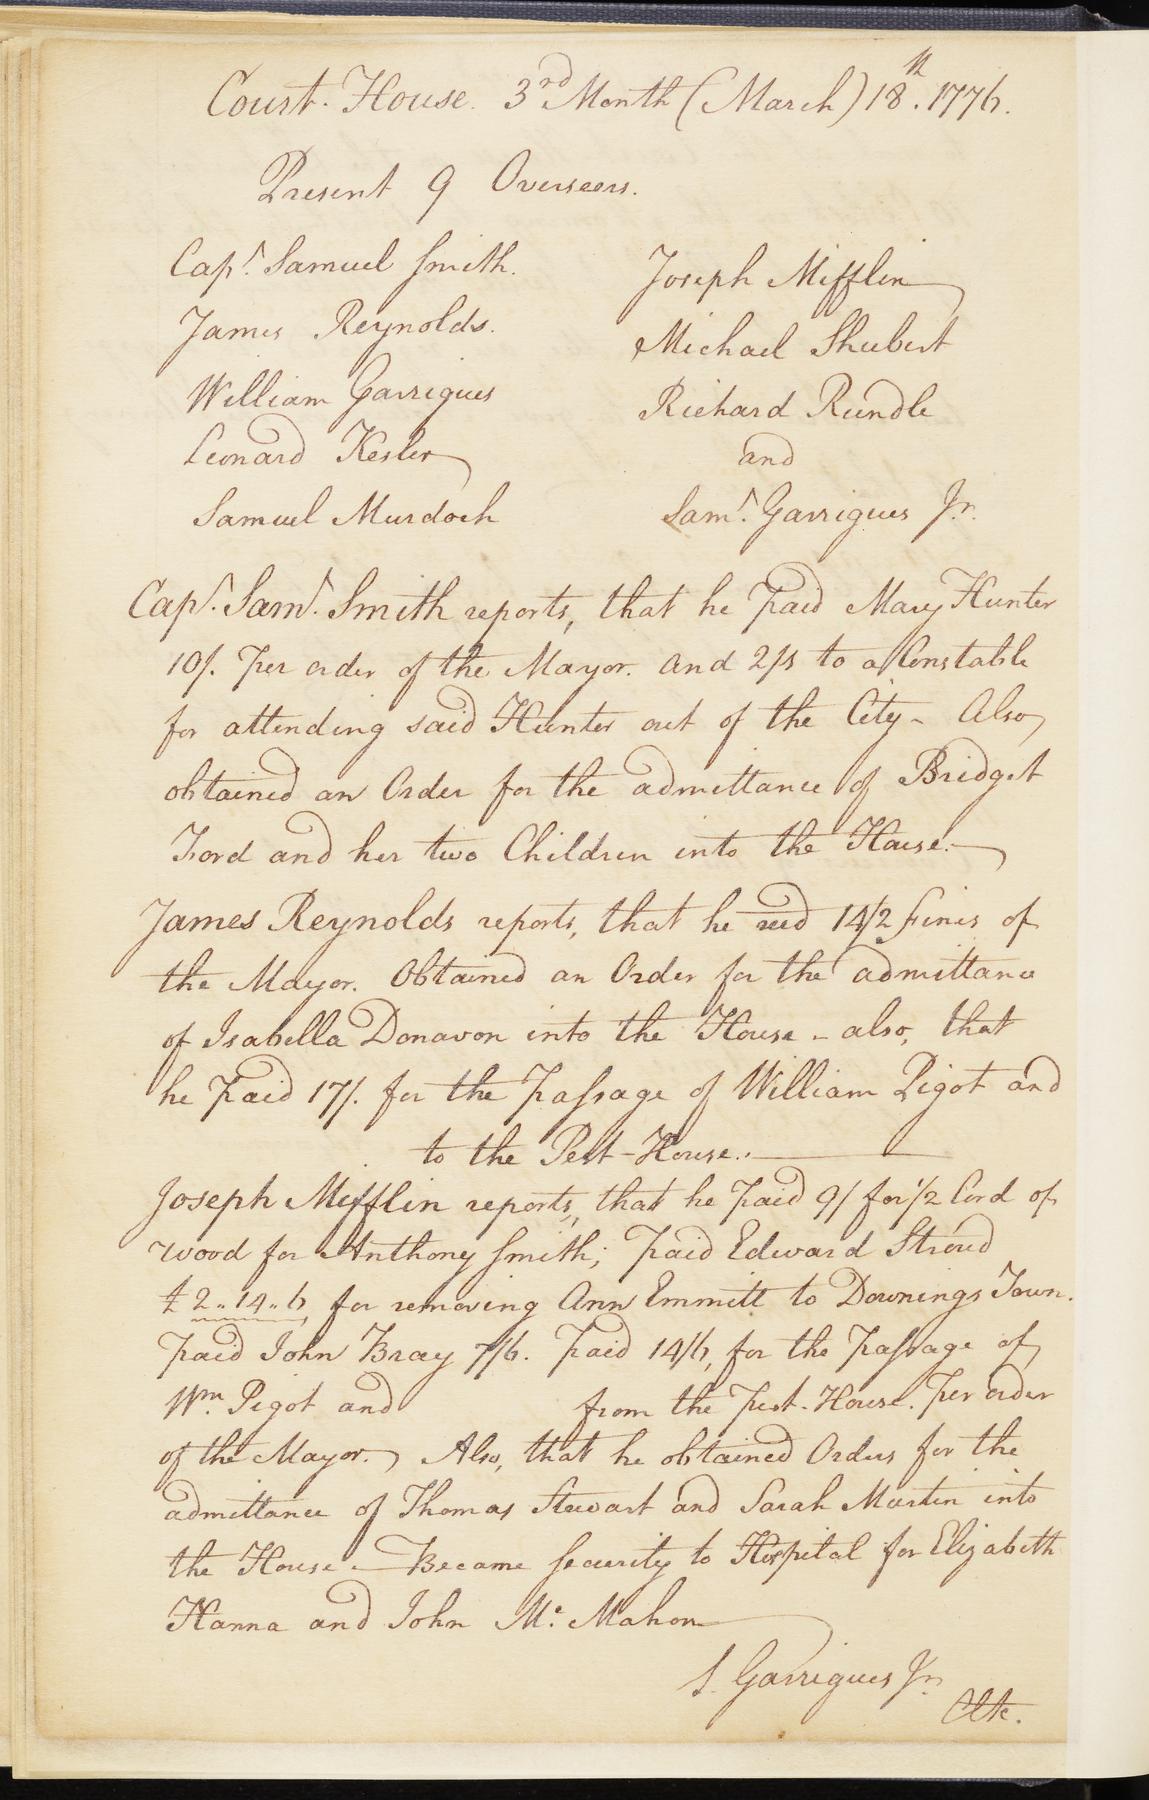 Court House. 3rd Month (March) 18th. 1776.
Present 9 Overseers.
Capt. Samuel Smith.
James Reynolds.
William Garrigues
Leonard Kesler
Samuel Murdoch
Joseph Mifflin
Michael Shubert
Richard Rundle
and
Saml. Garrigues Jr.
Capt. Saml. Smith reports, that he paid Mary Hunter
10/. per order of the Mayor. and 2/s to a Constable
for attending said Hunter out of the City - Also,
obtained an Order for the admittance of Bridget
Ford and her two Children into the House.
James Reynolds reports, that he recd 14/2 fines of
the Mayor. Obtained an Order for the admittance
of Isabella Donavon into the House - also, that
he paid 17/. for the Passage of William Pigot and
to the Pest-House..
Joseph Mifflin reports, that he paid 9/ for 1/2 Cord of
wood for Anthony Smith; paid Edward Stroud
£2..14..6, for removing Ann Emmitt to Downings Town.
Paid John Bray 7/6. Paid 14/6, for the Passage of
Wm. Pigot and from the Pest-House. per order
of the Mayor. Also, that he obtained Orders for the
admittance of Thomas Stewart and Sarah Martin into
the House. Became Security to Hospital for Elizabeth
Hanna and John Mc. Mahon
S. Garrigues Jr.
Clk.